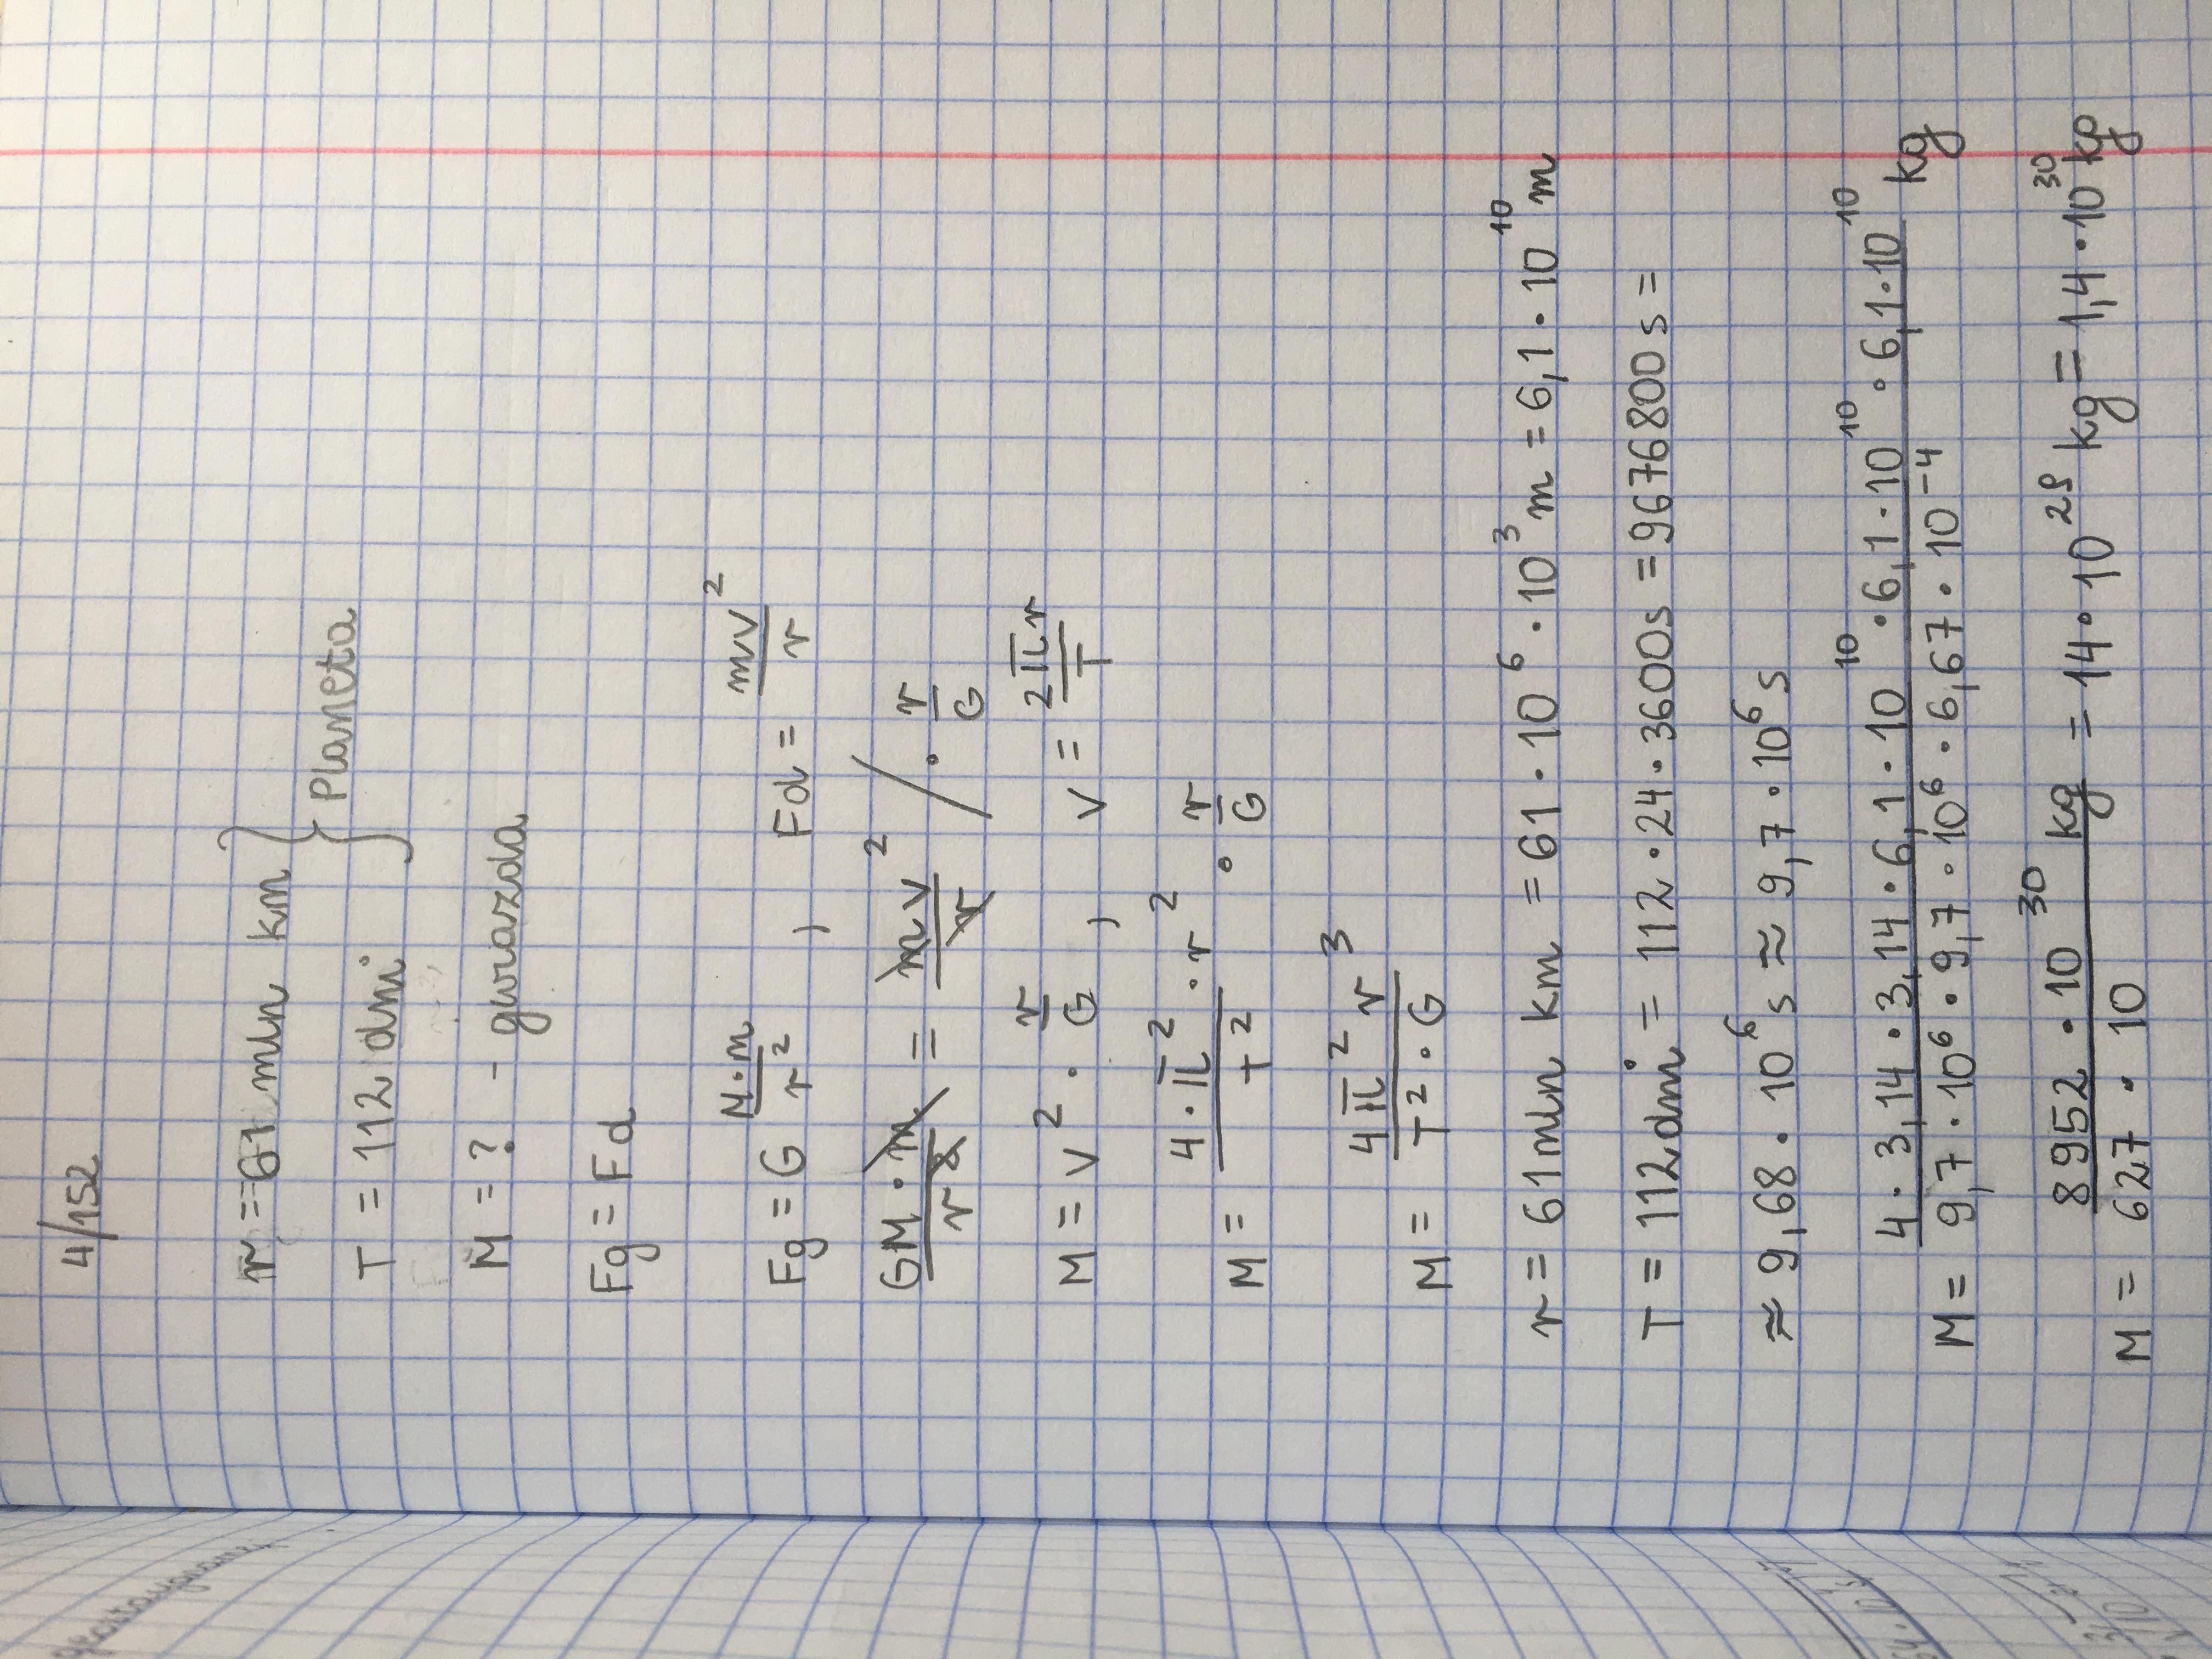 4/152
r = 61 mln km } Planeta
T = 112 dni
M = ? - gwiazda
Fg = Fd
Fg = G M·m/r², Fd = mv²/r
GM·m/r² = mv²/r /· r/G
M = v² · r/G, v = 2πr/T
M = 4·π²·r²/T² · r/G
M = 4π²r³/T²·G
r = 61 mln km = 61·10⁶·10³ m = 6,1·10¹⁰ m
T = 112 dni = 112·24·3600s = 9676800 s =
≈ 9,68·10⁶ s ≈ 9,7·10⁶ s
M = 4·3,14·3,14·6,1·10¹⁰·6,1·10¹⁰·6,1·10¹⁰/9,7·10⁶·9,7·10⁶·6,67·10⁻⁴ kg
M = 8952·10³⁰/627·10 kg = 14·10²⁹ kg = 1,4·10³⁰ kg